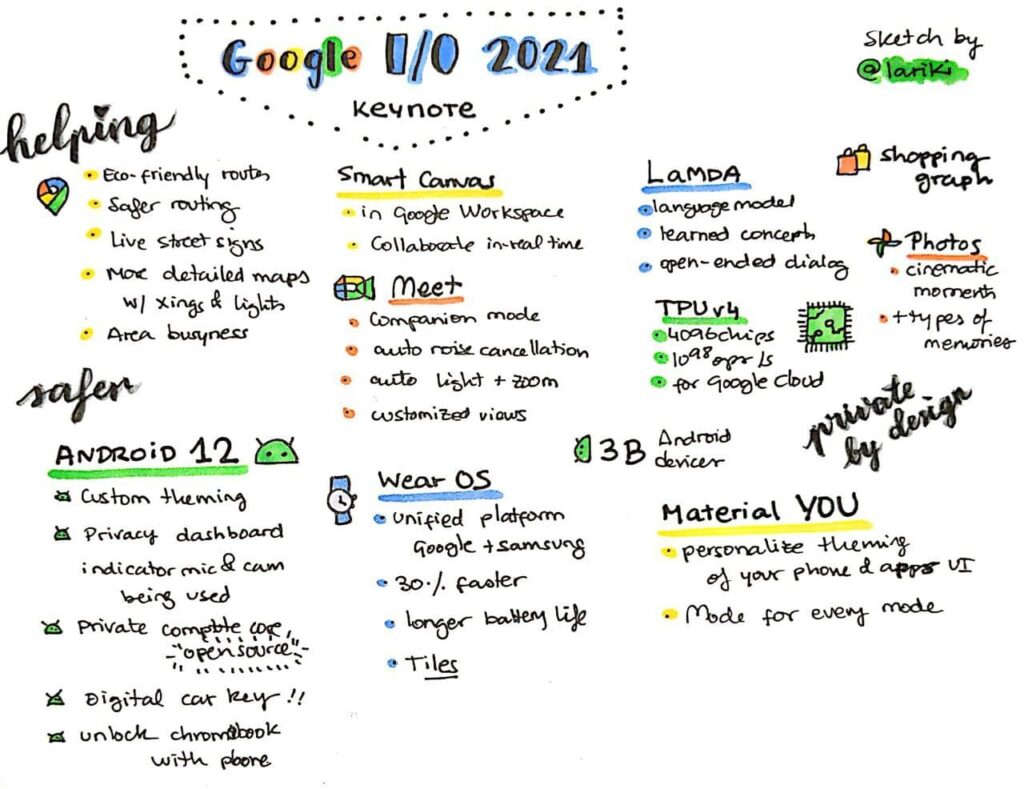 Google I/O 2021
Keynote
Sketch by
@lariki
helping
Eco-friendly routes
Safer routing
Live street signs
More detailed maps
w/ Xings & lights
Area busyness
Smart Canvas
in Google Workspace
Collaborate in-real time
Meet
Companion mode
auto noise cancellation
auto light + zoom
customized views
LaMDA
language model
learned concepts
open-ended dialog
TPU v4
4096 chips
for Google Cloud
shopping
graph
Photos
cinematic
moments
+ types of
memories
safer
ANDROID 12
Custom theming
Privacy dashboard
indicator mic & cam
being used
Private compute core,
"open source"
Digital car key!!
unlock chromebook
with phone
Wear OS
unified platform
Google + Samsung
30% faster
longer battery life
Tiles
3B Android
devices
private
by design
Material YOU
personalize theming
of your phone & apps UI
Mode for every mode